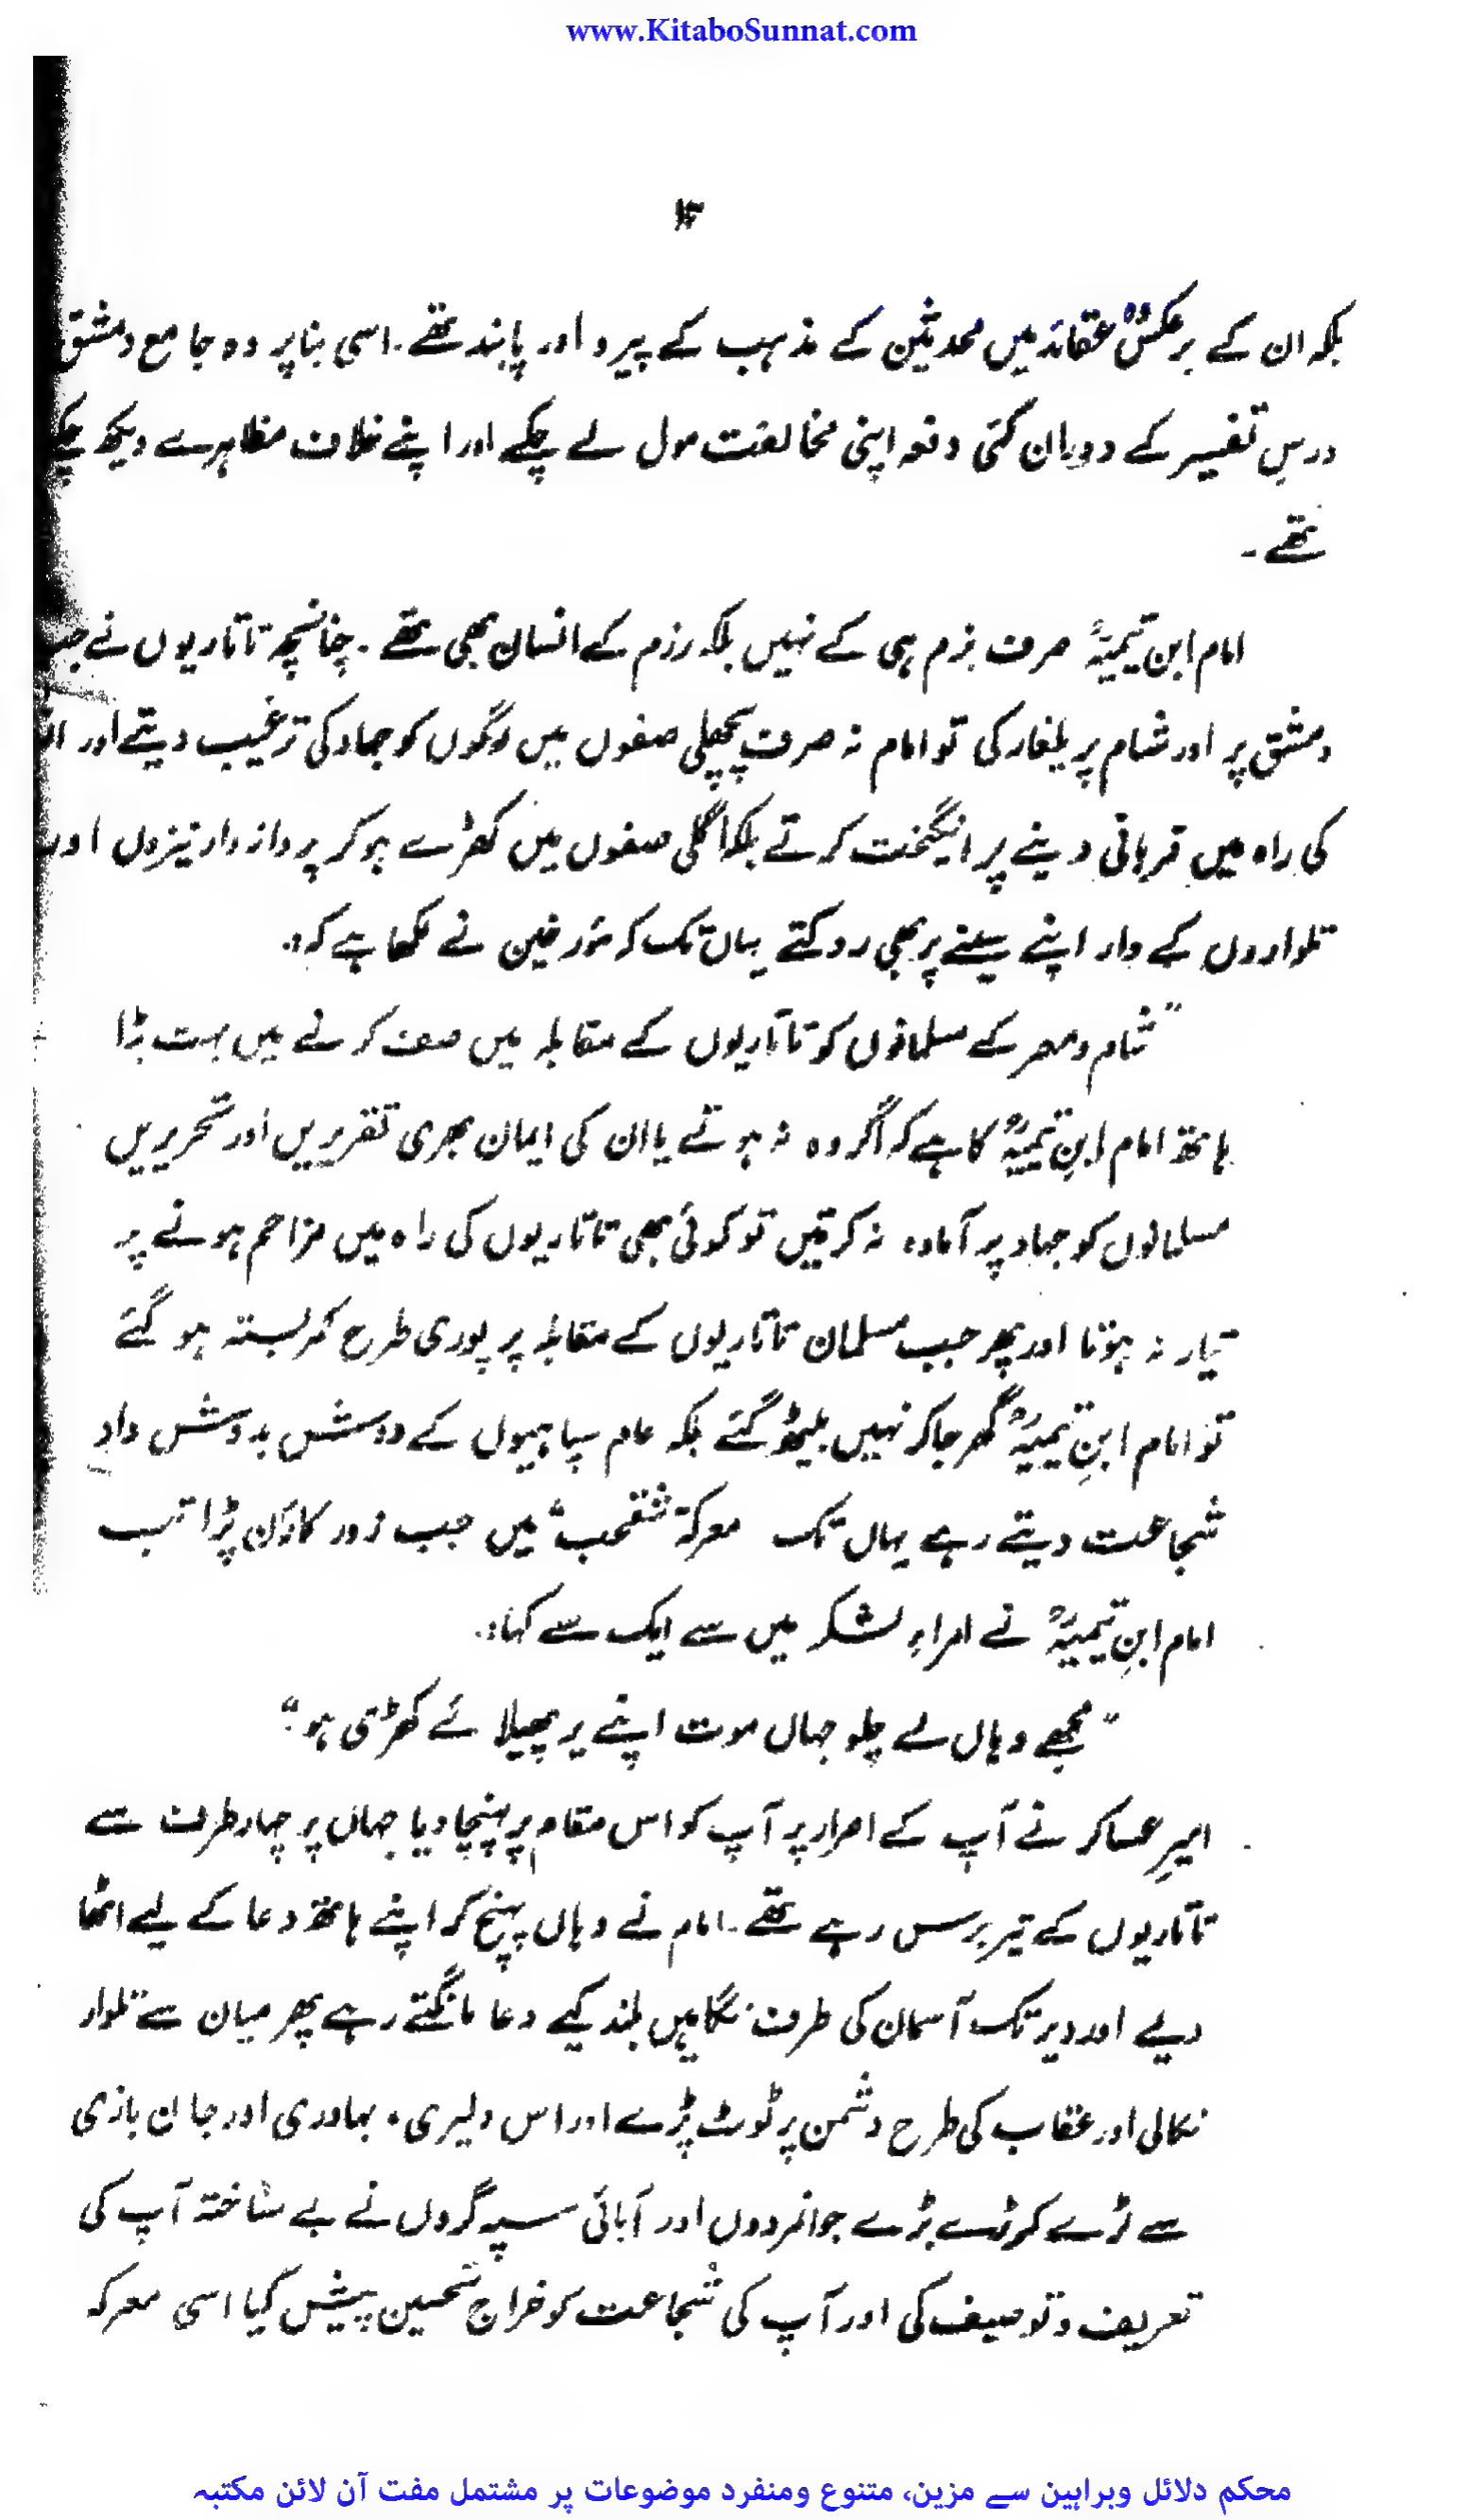 www.KitaboSunnat.com
بلکہ ان کے برعکس وہ عقائد میں محدثین کے مذہب کے پیرو اور پابند تھے۔ اسی بنا پر وہ جامع دمشق
درسِ تفسیر کے دوران کئی دفعہ اپنی مخالفت مول لے چکے اور اپنے خلاف مظاہرے دیکھ چکے
تھے۔
امام ابن تیمیہؒ صرف بزم ہی کے نہیں بلکہ رزم کے انسان بھی تھے۔ چنانچہ تاتاریوں نے جب
دمشق پر اور شام پر یلغار کی تو امام نہ صرف پچھلی صفوں میں لوگوں کو جہاد کی ترغیب دیتے اور
کی راہ میں قربانی دینے پر انگیخت کرتے بلکہ اگلی صفوں میں کھڑے ہو کر پروانہ وار نیزوں اور
تلواروں کے وار اپنے سینے پر بھی روکتے یہاں تک کہ مؤرخین نے لکھا ہے کہ:
"شام و مصر کے مسلمانوں کو تاتاریوں کے مقابلہ میں صف کرنے میں بہت بڑا
ہاتھ امام ابنِ تیمیہؒ کا ہے کہ اگر وہ نہ ہوتے یا ان کی ایمان بھری تقریریں اور تحریریں
مسلمانوں کو جہاد پر آمادہ نہ کرتیں تو کوئی بھی تاتاریوں کی راہ میں مزاحم ہونے پر
تیار نہ ہوتا اور پھر جب مسلمان تاتاریوں کے مقابلہ پر پوری طرح کمربستہ ہو گئے
تو امام ابنِ تیمیہؒ گھر جا کر نہیں بیٹھ گئے بلکہ عام سپاہیوں کے دوش بدوش دادِ
شجاعت دیتے رہے یہاں تک معرکۂ شقحب" میں جب زور کا رَن پڑا تب
امام ابنِ تیمیہؒ نے امراءِ لشکر میں سے ایک سے کہا:
"مجھے وہاں لے چلو جہاں موت اپنے پر پھیلائے کھڑی ہو"
امیرِ عساکر نے آپ کے اصرار پر آپ کو اس مقام پر پہنچا دیا جہاں پر چہار طرف سے
تاتاریوں کے تیر برس رہے تھے۔ امام نے وہاں پہنچ کر اپنے ہاتھ دعا کے لیے اٹھا
دیے اور دیر تک آسمان کی طرف نگاہیں بلند کیے دعا مانگتے رہے پھر میان سے تلوار
نکالی اور عقاب کی طرح دشمن پر ٹوٹ پڑے اور اس دلیری، بہادری اور جان بازی
سے لڑے کہ بڑے بڑے جوانمردوں اور آبائی سپہ گروں نے بے ساختہ آپ کی
تعریف و توصیف کی اور آپ کی شجاعت کو خراجِ تحسین پیش کیا اسی معرکہ
محکم دلائل وبراہین سے مزین، متنوع ومنفرد موضوعات پر مشتمل مفت آن لائن مکتبہ